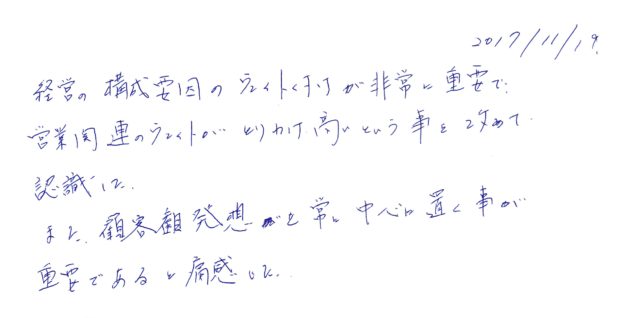 2017/11/19.
経営の構成要因のウェイト付けが非常に重要で
営業関連のウェイトがとりわけ高いという事を改めて
認識した.
また、顧客観発想を常に中心に置く事が
重要であると痛感した.